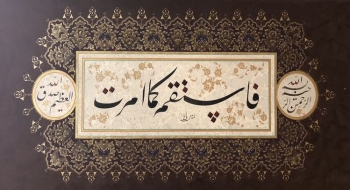 بسم الله الرحمن الرحیم
فاستقم کما امرت
صدق الله العظیم